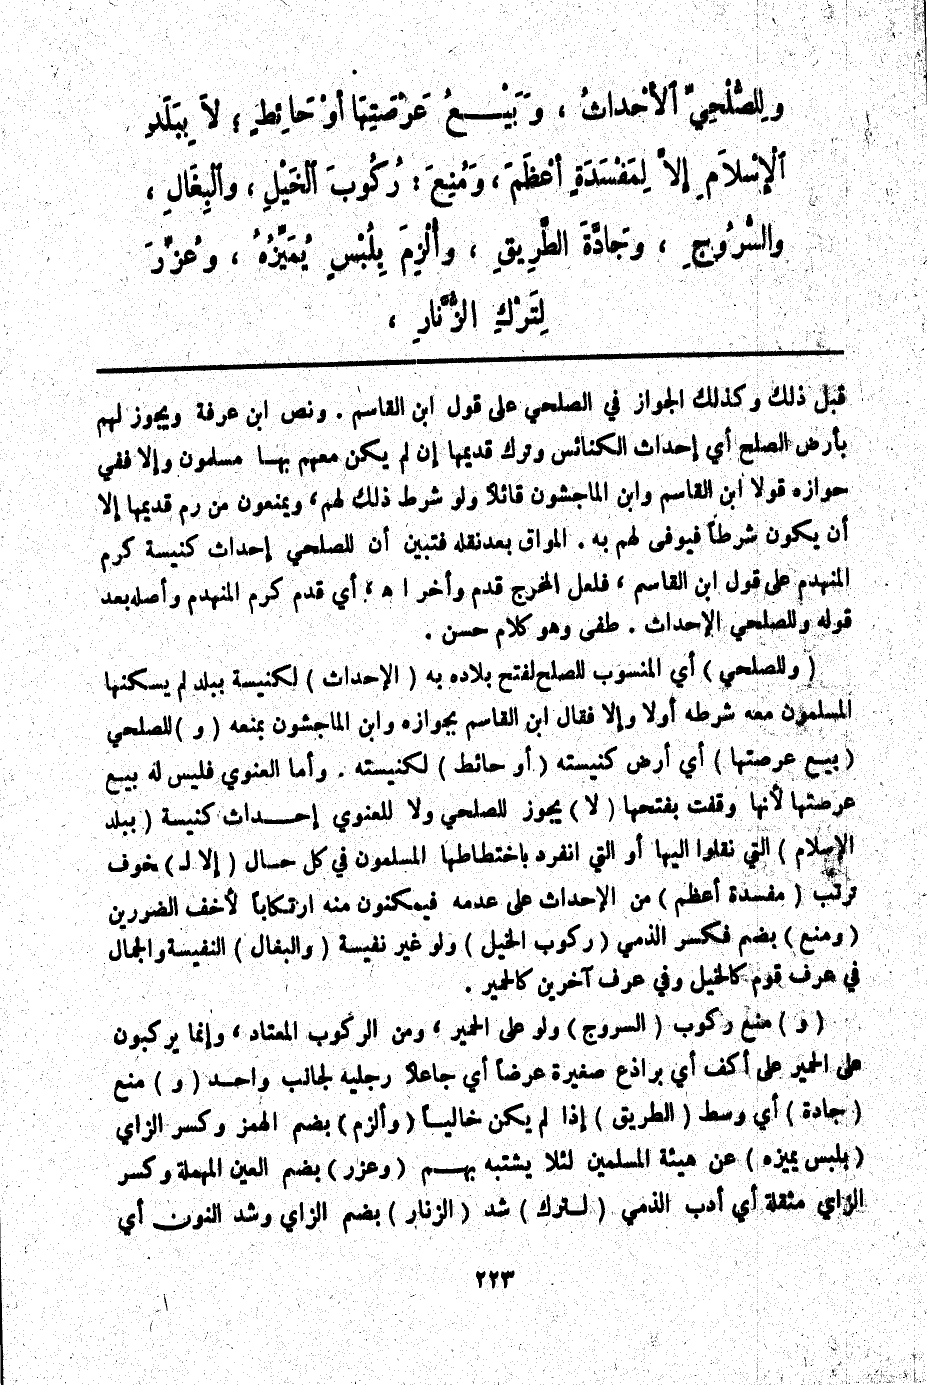 وَلِلصُّلْحِيِّ ٱلْأَحْداثُ ، وَبَيْعُ عَرْصَتِهَا أَوْ حَائِطٍ ؛ لاَ بِبَلَدِ
ٱلْإِسْلاَمِ إِلاَّ لِمَفْسَدَةٍ أَعْظَمَ ، وَمُنِعَ : رُكُوبَ ٱلْخَيْلِ ، وٱلْبِغَالِ ،
والسُّرُوجِ ، وَجَادَّةَ الطَّرِيقِ ، وأُلْزِمَ بِلُبْسٍ يُمَيِّزُهُ ، وعُزِّرَ
لِتَرْكِ الزُّنَّارِ ،
قبل ذلك وكذلك الجواز في الصلحي على قول ابن القاسم . ونص ابن عرفة ويجوز لهم
بأرض الصلح أي إحداث الكنائس وترك قديمها إن لم يكن معهم بهـا مسلمون وإلا ففي
جوازه قولا ابن القاسم وابن الماجشون قائلاً ولو شرط ذلك لهم ، ويمنعون من رم قديمها إلا
أن يكون شرطاً فيوفى لهم به . المواق بعد نقله فتبين أن للصلحي إحداث كنيسة كرم
المنهدم على قول ابن القاسم ، فلعل المخرج قدم وأخر ا هـ ، أي قدم كرم المنهدم وأصله بعد
قوله وللصلحي الإحداث . طفى وهو كلام حسن .
( وللصلحي ) أي المنسوب للصلح لفتح بلاده به ( الإحداث ) لكنيسة ببلد لم يسكنها
المسلمون معه شرطه أولا وإلا فقال ابن القاسم بجوازه وابن الماجشون بمنعه ( و ) للصلحي
( بيع عرصتها ) أي أرض كنيسته ( أو حائط ) لكنيسته . وأما العنوي فليس له بيع
عرصتها لأنها وقفت بفتحها ( لا ) يجوز للصلحي ولا للعنوي إحـــداث كنيسة ( ببلد
الإسلام ) التي نقلوا اليها أو التي انفرد باختطاطها المسلمون في كل حـال ( إلا لـ ) خوف
ترتب ( مفسدة أعظم ) من الإحداث على عدمه فيمكنون منه ارتكاباً لأخف الضررين
( ومنع ) بضم فكسر الذمي ( ركوب الخيل ) ولو غير نفيسة ( والبغال ) النفيسة والجمال
في عرف قوم كالخيل وفي عرف آخرين كالحمير .
( و ) منع ركوب ( السروج ) ولو على الحمير ، ومن الركوب المعتاد ، وإنما يركبون
على الحمير على أكف أي براذع صغيرة عرضاً أي جاعلاً رجليه لجانب واحـد ( و ) منع
( جادة ) أي وسط ( الطريق ) إذا لم يكن خاليـاً ( وألزم ) بضم الهمز وكسر الزاي
( بلبس يميزه ) عن هيئة المسلمين لئلا يشتبه بهـــم ( وعزر ) بضم العين المهملة وكسر
الزاي مثقلة أي أدب الذمي ( لـترك ) شد ( الزنار ) بضم الزاي وشد النون أي
٢٢٣